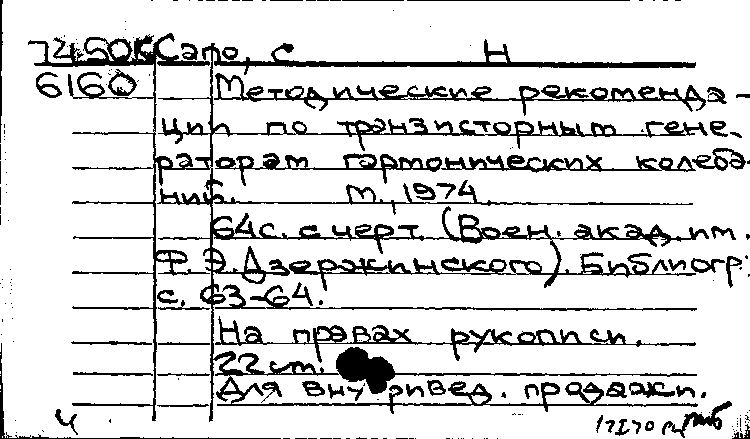 Сапо, с Н
6160 Методические рекоменда-
ции по транзисторным гене-
раторам гармонических колеба-
ний. М., 1974.
64с. с черт. (Воен. акад. им.
Ф. Э. Дзержинского). Библиогр.:
с. 63-64.
На правах рукописи.
22 см.
Для внутривед. продажи.